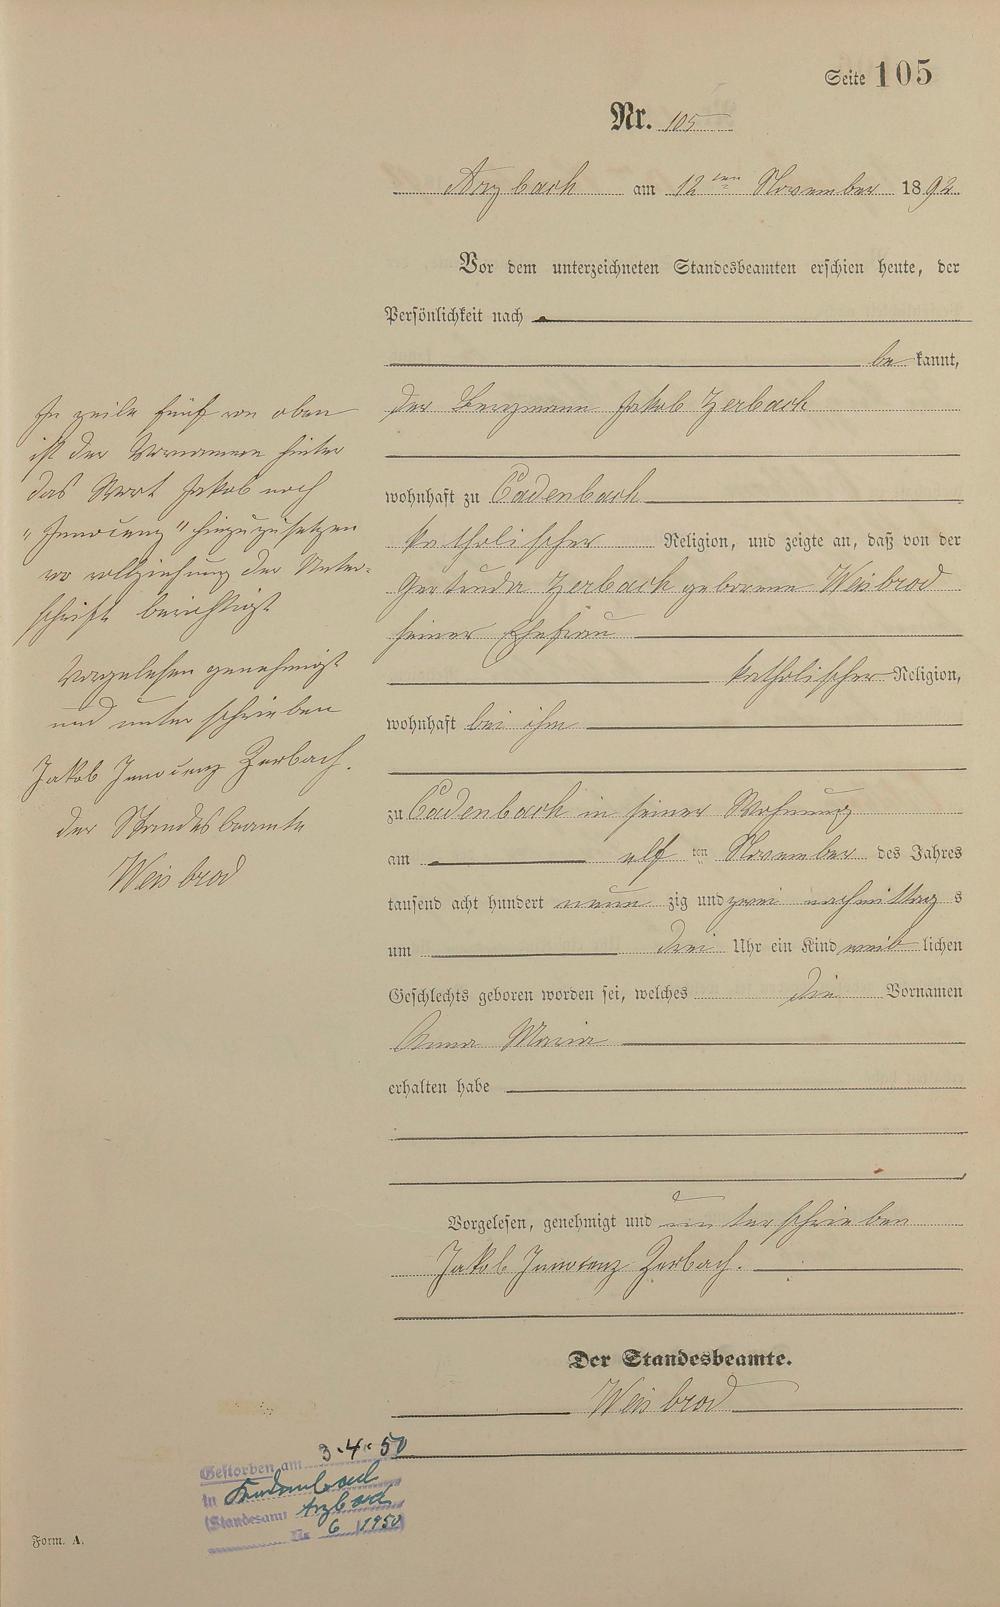 Seite 105
Nr. 105
Arzbach am 12ten November 1892
Vor dem unterzeichneten Standesbeamten erschien heute, der
Persönlichkeit nach
bekannt,
der Bergmann Jakob Zerbach
wohnhaft zu Cadenbach
katholischer Religion, und zeigte an, daß von der
Gertruda Zerbach geborene Weisbrod
seiner Ehefrau
katholischer Religion,
wohnhaft bei ihm
zu Cadenbach in seiner Wohnung
am elf ten November des Jahres
tausend acht hundert neun zig und zwei nachmittags
um drei Uhr ein Kind weiblichen
Geschlechts geboren worden sei, welches die Vornamen
Anna Maria
erhalten habe
Vorgelesen, genehmigt und unterschrieben
Jakob Innocenz Zerbach.
Der Standesbeamte.
Weisbrod
In zeile fünf von oben
ist der Vornamen hinter
das Wort Jakob noch
"Innocenz" hinzuzusetzen
vollziehung der Unter-
schrift berichtigt
Vorgelesen genehmigt
und unterschrieben
Jakob Innocenz Zerbach.
der Standesbeamte
Weisbrod
Gestorben am 3.4.50
in
(Standesamt Arzbach
Nr. 6/1950)
Form. A.